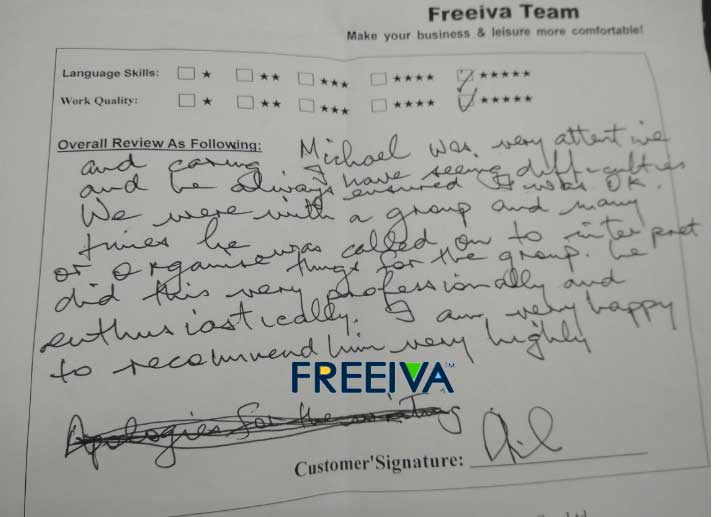 Freeiva Team
Make your business & leisure more comfortable!
Language Skills: ★ ★★ ★★★ ★★★★ ★★★★★
Work Quality: ★ ★★ ★★★ ★★★★ ★★★★★
Overall Review As Following: Michael was very attentive
and caring I have seeing difficulties
and he always ensured I was OK.
We were with a group and many
times he was called on to interpret
or organise things for the group. he
did this very professionally and
enthusiastically. I am very happy
to recommend him very highly
FREEIVA™
Apologies for the writing
Customer'Signature: